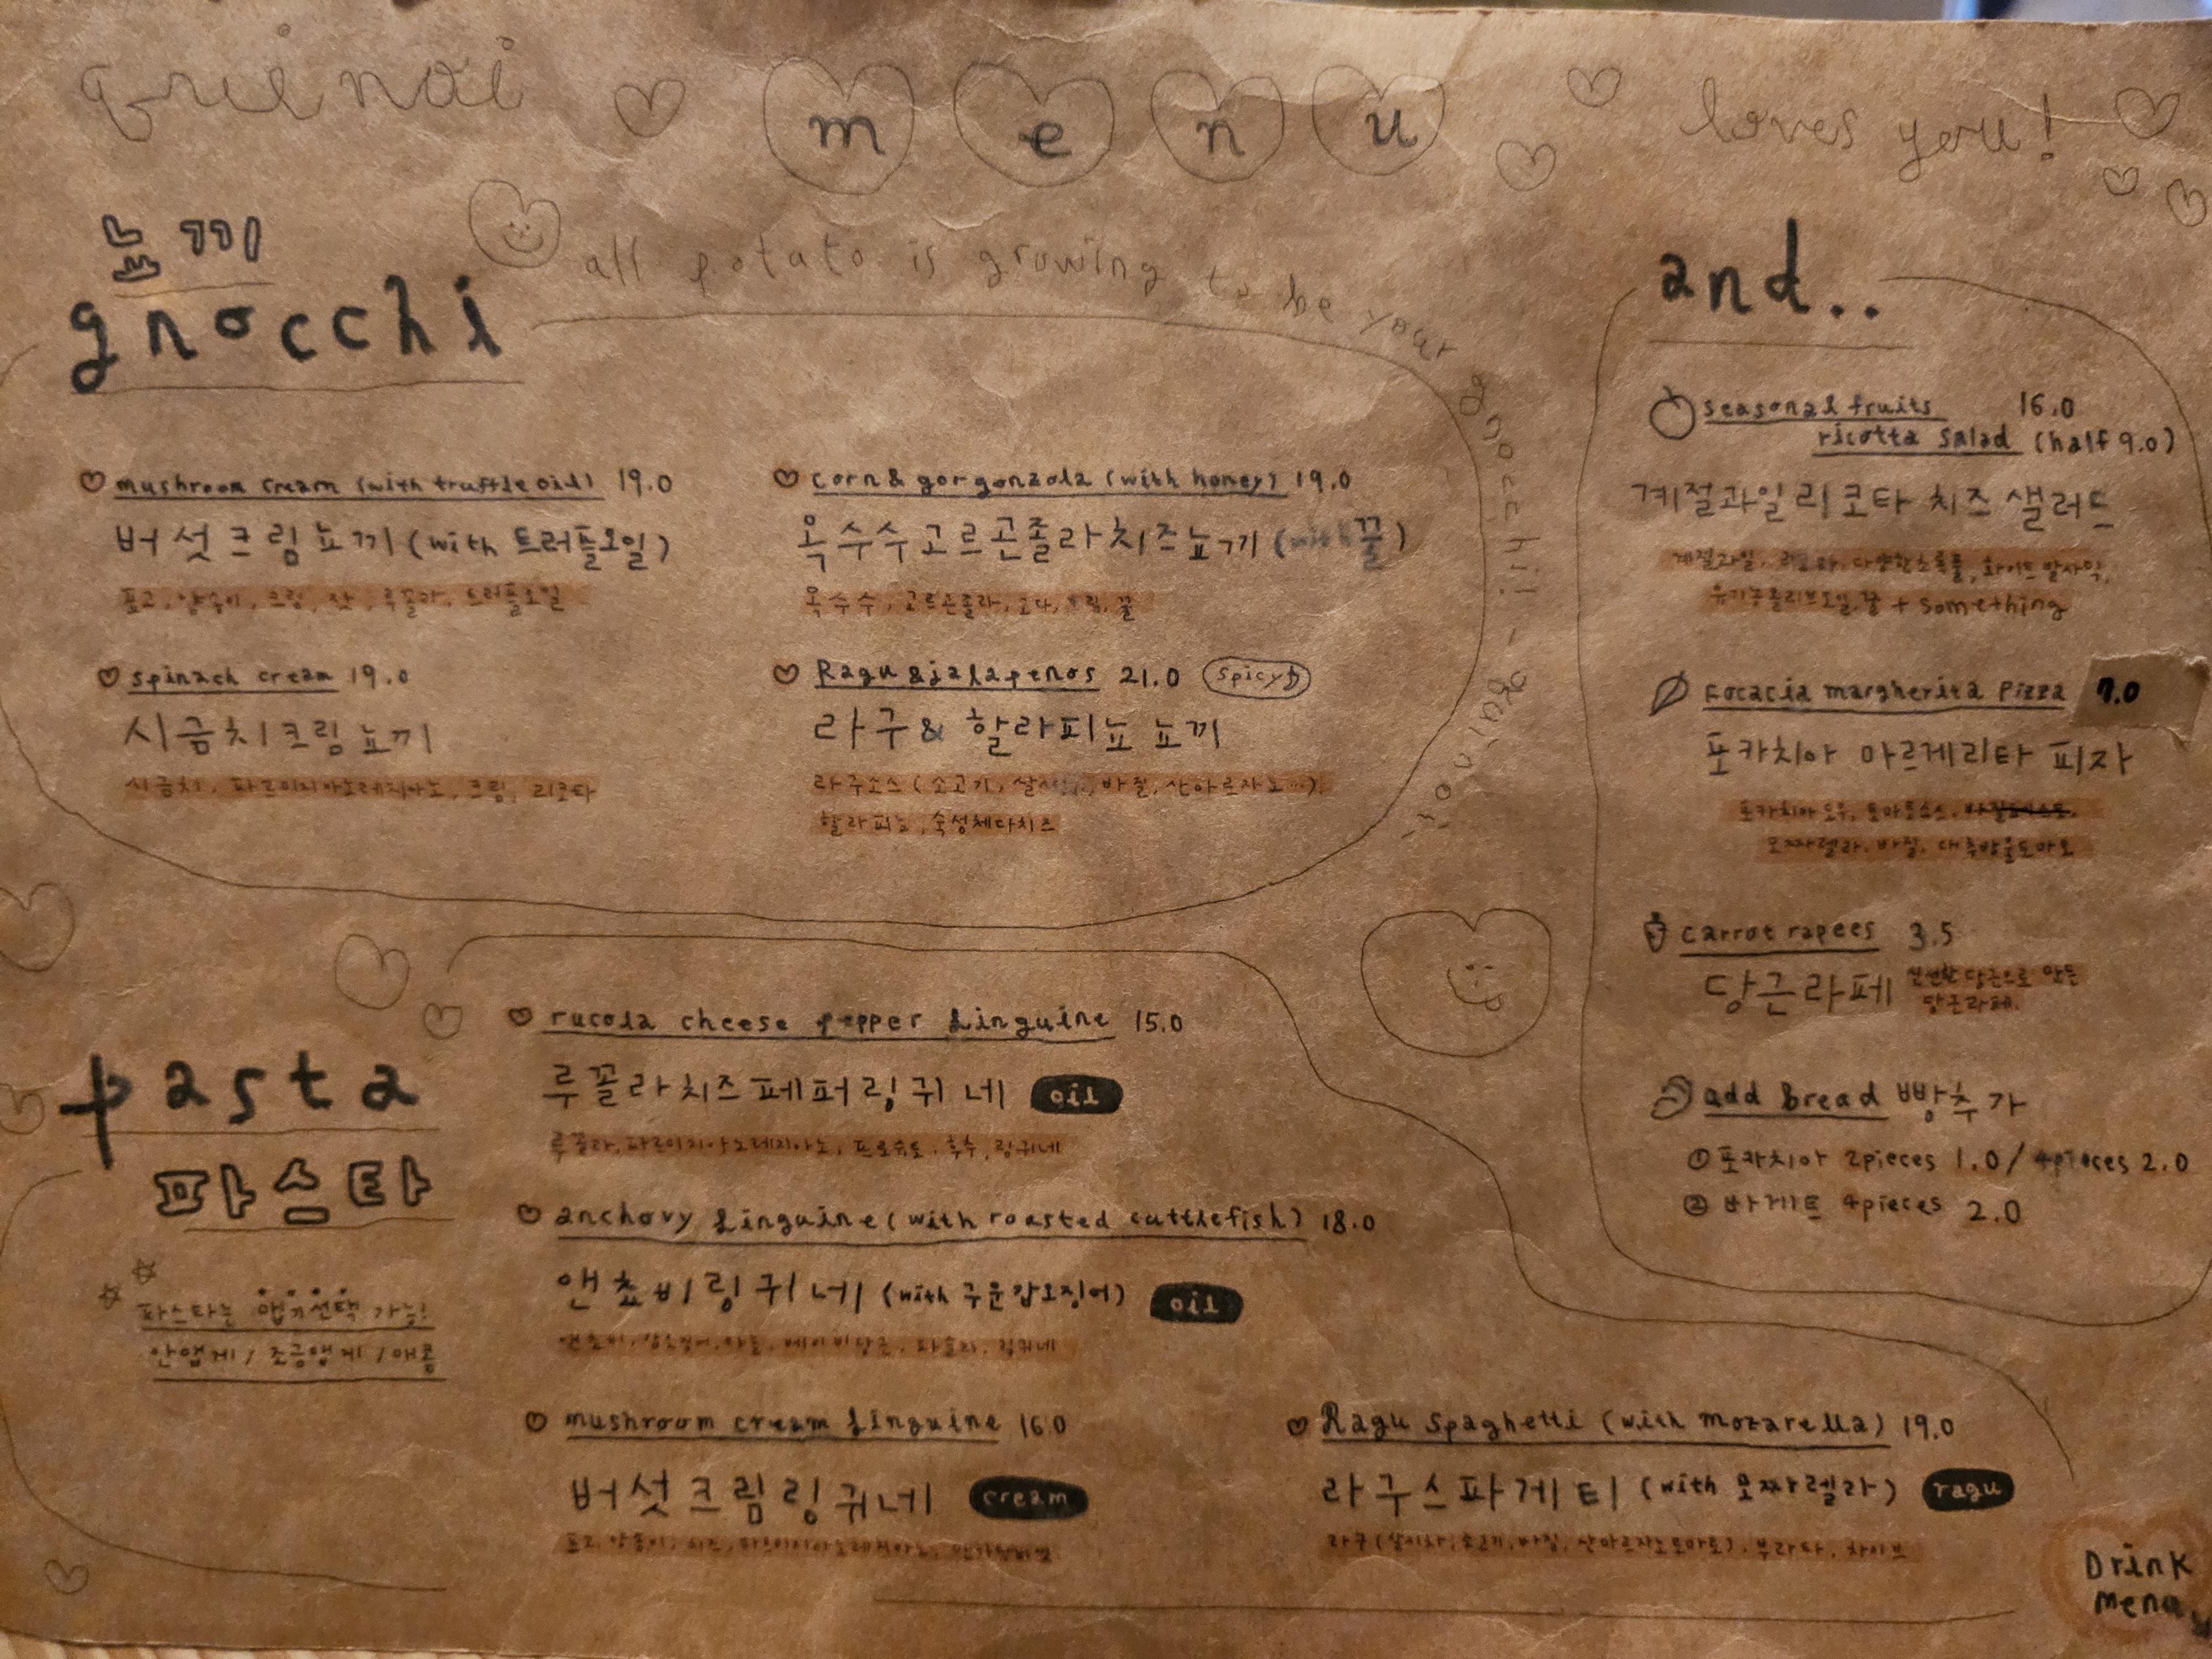 menu
loves you!
뇨끼
gnocchi
all potato is growing to be your gnocchi! -
mushroom cream (with truffle oil) 19.0
버섯크림뇨끼 (with 트러플오일)
표고, 양송이, 크림, 잣, 루꼴라, 트러플오일
spinach cream 19.0
시금치크림뇨끼
시금치, 파르미지아노레지아노, 크림, 리코타
corn & gorgonzola (with honey) 19.0
옥수수고르곤졸라치즈뇨끼 (with 꿀)
옥수수, 고르곤졸라, 크림, 꿀
Ragu & jalapenos 21.0 spicy
라구 & 할라피뇨 뇨끼
라구소스 (소고기, 바질, 산마르자노...)
할라피뇨, 숙성체다치즈
pasta
파스타
파스타는 맵기선택 가능!
안맵게 / 조금맵게 / 매콤
rucola cheese pepper linguine 15.0
루꼴라치즈페퍼링귀네 oil
루꼴라, 파르미지아노레지아노, 프로슈토, 후추, 링귀네
anchovy linguine (with roasted cuttlefish) 18.0
앤쵸비링귀네 (with 구운갑오징어) oil
앤쵸비, 갑오징어, 마늘, 링귀네
mushroom cream linguine 16.0
버섯크림링귀네 cream
Ragu Spaghetti (with mozarella) 19.0
라구스파게티 (with 모짜렐라) ragu
라구 (바질, 산마르자노토마토), 부라타, 차이브
and..
seasonal fruits 16.0
ricotta salad (half 9.0)
계절과일리코타 치즈 샐러드
계절과일, 리코타, 다양한초록풀, 화이트발사믹,
유기농올리브오일, 꿀 + something
Focacia margherita Pizza 9.0
포카치아 마르게리타 피자
포카치아도우, 토마토소스, 바질페스토,
모짜렐라, 바질, 대추방울토마토
carrot rapees 3.5
당근라페 신선한 당근으로 만든
당근라페.
add Bread 빵추가
① 포카치아 2pieces 1.0 / 4pieces 2.0
② 바게트 4pieces 2.0
Drink
menu